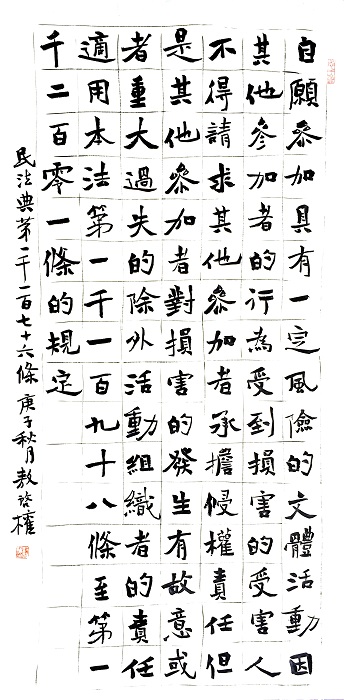 自願參加具有一定風險的文體活動因
其他參加者的行為受到損害的受害人
不得請求其他參加者承擔侵權責任但
是其他參加者對損害的發生有故意或
者重大過失的除外活動組織者的責任
適用本法第一千一百九十八條至第一
千二百零一條的規定
民法典第一千一百七十六條 庚子秋月 敖啓權